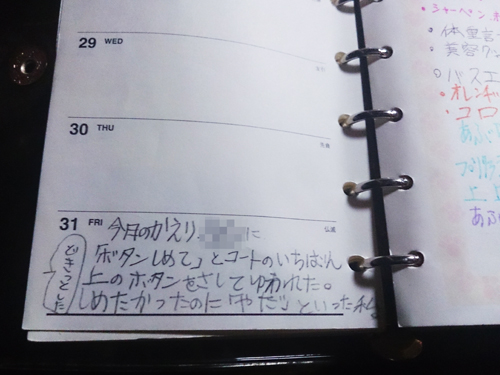 29 WED
30 THU
先勝
31 FRI
仏滅
今月のかえり
に
「ボタンしめて」とコートのいちばん
上のボタンをさしてゆわれた。
しめたかったのに「やだ」といった私。
どきっとした
・シャーペン
・体重
・美容
○バスエ
・オレンヂ
・コロ